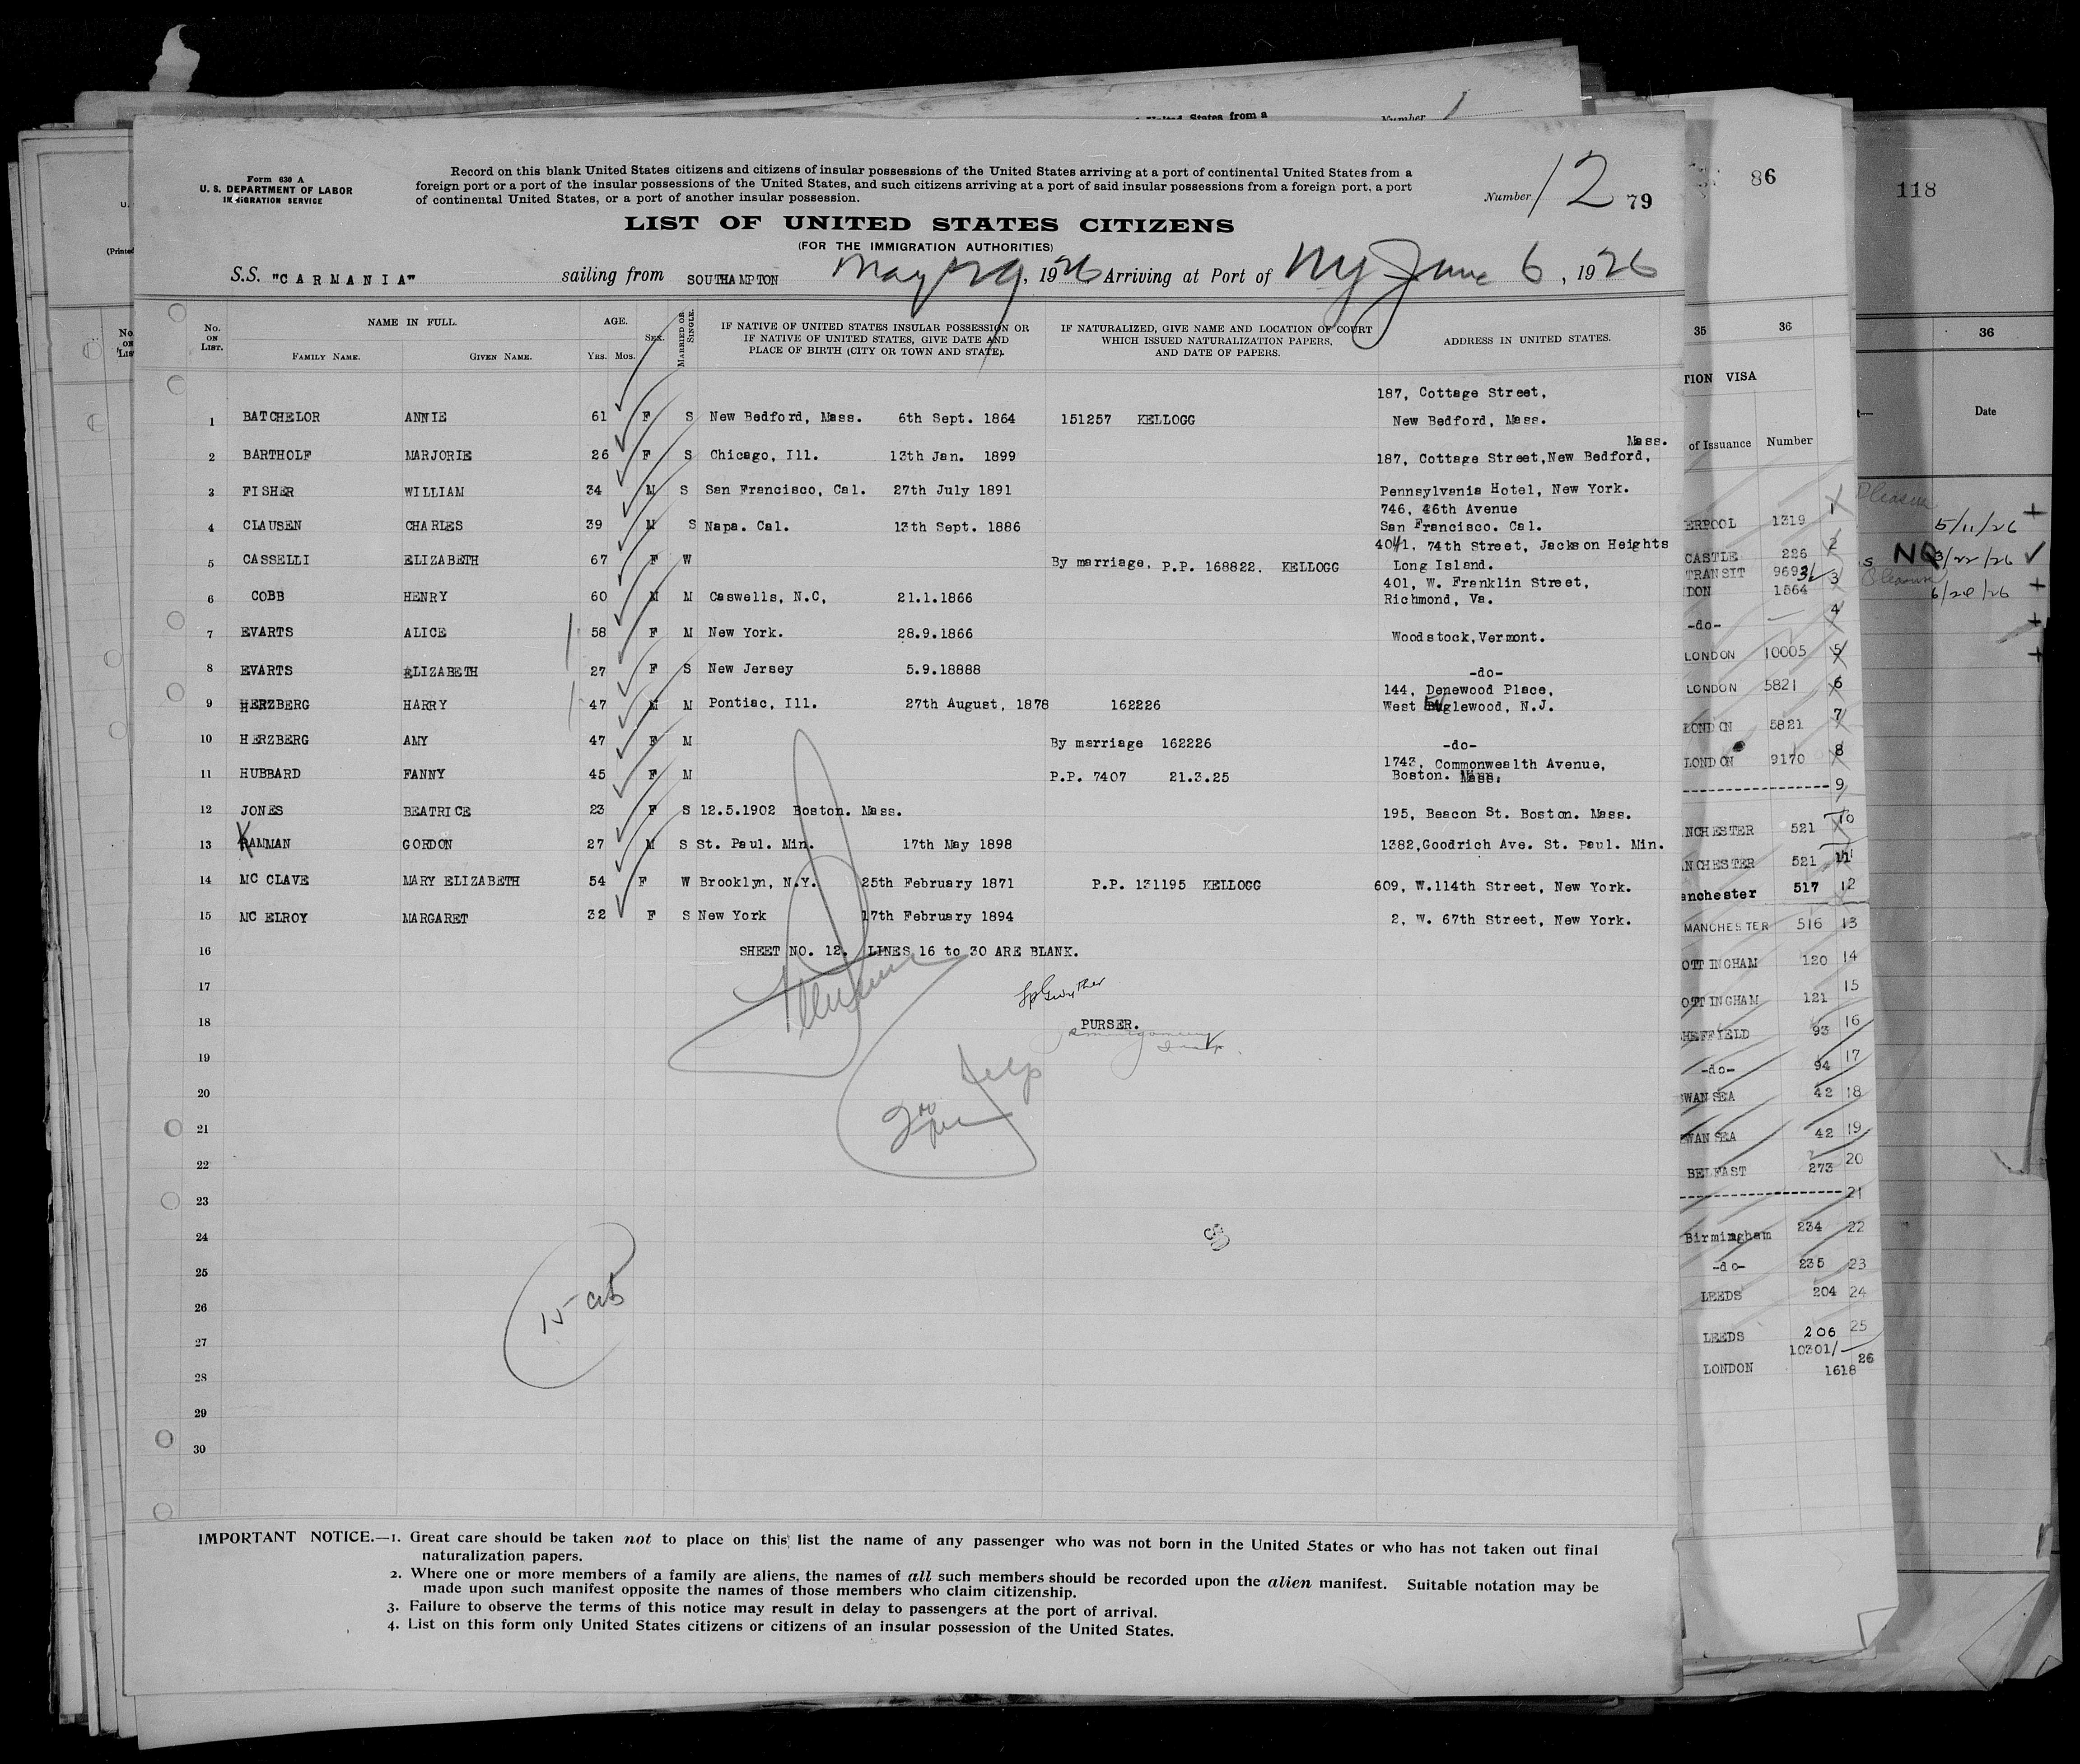 United States from a
Number 1
Form 630 A
U. S. DEPARTMENT OF LABOR
IMMIGRATION SERVICE
Record on this blank United States citizens and citizens of insular possessions of the United States arriving at a port of continental United States from a
foreign port or a port of the insular possessions of the United States, and such citizens arriving at a port of said insular possessions from a foreign port, a port
of continental United States, or a port of another insular possession.
Number 12 79
LIST OF UNITED STATES CITIZENS
(FOR THE IMMIGRATION AUTHORITIES)
S.S. "CARMANIA" sailing from SOUTHAMPTON May 29, 1926 Arriving at Port of NY June 6, 1926
No. ON LIST. NAME IN FULL. AGE. SEX. MARRIED OR SINGLE. IF NATIVE OF UNITED STATES INSULAR POSSESSION OR IF NATIVE OF UNITED STATES, GIVE DATE AND PLACE OF BIRTH (CITY OR TOWN AND STATE). IF NATURALIZED, GIVE NAME AND LOCATION OF COURT WHICH ISSUED NATURALIZATION PAPERS, AND DATE OF PAPERS. ADDRESS IN UNITED STATES.
FAMILY NAME. GIVEN NAME. Yrs. Mos.
187, Cottage Street,
1 BATCHELOR ANNIE 61 F S New Bedford, Mass. 6th Sept. 1864 151257 KELLOGG New Bedford, Mass.
Mass.
2 BARTHOLF MARJORIE 26 F S Chicago, Ill. 13th Jan. 1899 187, Cottage Street,New Bedford,
3 FISHER WILLIAM 34 M S San Francisco, Cal. 27th July 1891 Pennsylvania Hotel, New York.
746, 46th Avenue
4 CLAUSEN CHARLES 39 M S Napa. Cal. 13th Sept. 1886 San Francisco. Cal.
4041, 74th Street, Jackson Heights
5 CASSELLI ELIZABETH 67 F W By marriage. P.P. 168822. KELLOGG Long Island.
401, W. Franklin Street,
6 COBB HENRY 60 M M Caswells, N.C, 21.1.1866 Richmond, Va.
7 EVARTS ALICE 58 F M New York. 28.9.1866 Woodstock,Vermont.
8 EVARTS ELIZABETH 27 F S New Jersey 5.9.18888 -do-
144, Denewood Place,
9 HERZBERG HARRY 47 M M Pontiac, Ill. 27th August, 1878 162226 West Englewood, N.J.
10 HERZBERG AMY 47 F M By marriage 162226 -do-
1743, Commonwealth Avenue,
11 HUBBARD FANNY 45 F M P.P. 7407 21.3.25 Boston. Mass.
12 JONES BEATRICE 23 F S 12.5.1902 Boston. Mass. 195, Beacon St. Boston. Mass.
13 KAMMAN GORDON 27 M S St. Paul. Min. 17th May 1898 1382,Goodrich Ave. St. Paul. Min.
14 MC CLAVE MARY ELIZABETH 54 F W Brooklyn, N.Y. 25th February 1871 P.P. 131195 KELLOGG 609, W.114th Street, New York.
15 MC ELROY MARGARET 32 F S New York 17th February 1894 2, W. 67th Street, New York.
16 SHEET NO. 12. LINES 16 to 30 ARE BLANK.
17
18 PURSER.
19
20
21
22
23
24
25
15
26
27
28
29
30
IMPORTANT NOTICE.—1. Great care should be taken not to place on this list the name of any passenger who was not born in the United States or who has not taken out final
naturalization papers.
2. Where one or more members of a family are aliens, the names of all such members should be recorded upon the alien manifest. Suitable notation may be
made upon such manifest opposite the names of those members who claim citizenship.
3. Failure to observe the terms of this notice may result in delay to passengers at the port of arrival.
4. List on this form only United States citizens or citizens of an insular possession of the United States.
86
35 36
TION VISA
of Issuance Number
ERPOOL 1319 1
CASTLE 226 2
TRANSIT 3
DON 1564
-do- 4
LONDON 10005 5
LONDON 5821 6
LONDON 5821 7
LONDON 9170 8
9
NCHESTER 521 10
ANCHESTER 521 11
anchester 517 12
MANCHESTER 516 13
OTTINGHAM 120 14
OTTINGHAM 121 15
HEFFIELD 93 16
-do- 94 17
WANSEA 42 18
WANSEA 42 19
BELFAST 273 20
21
Birmingham 234 22
-do- 235 23
LEEDS 204 24
LEEDS 206 25
10301/
LONDON 1618 26
118
36
Date
5/11/26
NQ 3/22/26
6/24/26